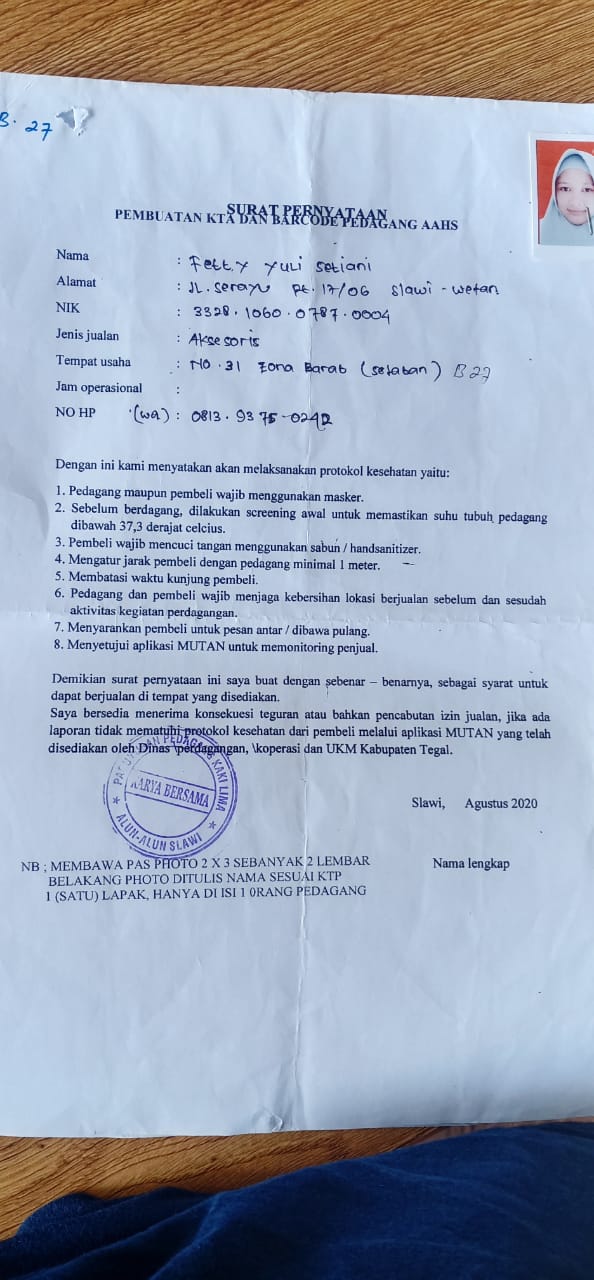 B. 27
SURAT PERNYATAAN
PEMBUATAN KTA DAN BARCODE PEDAGANG AAHS
Nama : Fetty Yuli Setiani
Alamat : JL. Serayu Rt. 17/06 Slawi - wetan
NIK : 3328.1060.0787.0004
Jenis jualan : Aksesoris
Tempat usaha : NO.31 Zona Barat (selatan) B27
Jam operasional :
NO HP (wa) : 0813.9375-0242
Dengan ini kami menyatakan akan melaksanakan protokol kesehatan yaitu:
1. Pedagang maupun pembeli wajib menggunakan masker.
2. Sebelum berdagang, dilakukan screening awal untuk memastikan suhu tubuh pedagang
dibawah 37,3 derajat celcius.
3. Pembeli wajib mencuci tangan menggunakan sabun / handsanitizer.
4. Mengatur jarak pembeli dengan pedagang minimal 1 meter.
5. Membatasi waktu kunjung pembeli.
6. Pedagang dan pembeli wajib menjaga kebersihan lokasi berjualan sebelum dan sesudah
aktivitas kegiatan perdagangan.
7. Menyarankan pembeli untuk pesan antar / dibawa pulang.
8. Menyetujui aplikasi MUTAN untuk memonitoring penjual.
Demikian surat pernyataan ini saya buat dengan sebenar – benarnya, sebagai syarat untuk
dapat berjualan di tempat yang disediakan.
Saya bersedia menerima konsekuesi teguran atau bahkan pencabutan izin jualan, jika ada
laporan tidak mematuhi protokol kesehatan dari pembeli melalui aplikasi MUTAN yang telah
disediakan oleh Dinas \perdagangan, \koperasi dan UKM Kabupaten Tegal.
PEDAGANG KAKI LIMA
KARYA BERSAMA
ALUN-ALUN SLAWI
Slawi, Agustus 2020
NB ; MEMBAWA PAS PHOTO 2 X 3 SEBANYAK 2 LEMBAR
BELAKANG PHOTO DITULIS NAMA SESUAI KTP
1 (SATU) LAPAK, HANYA DI ISI 1 0RANG PEDAGANG
Nama lengkap